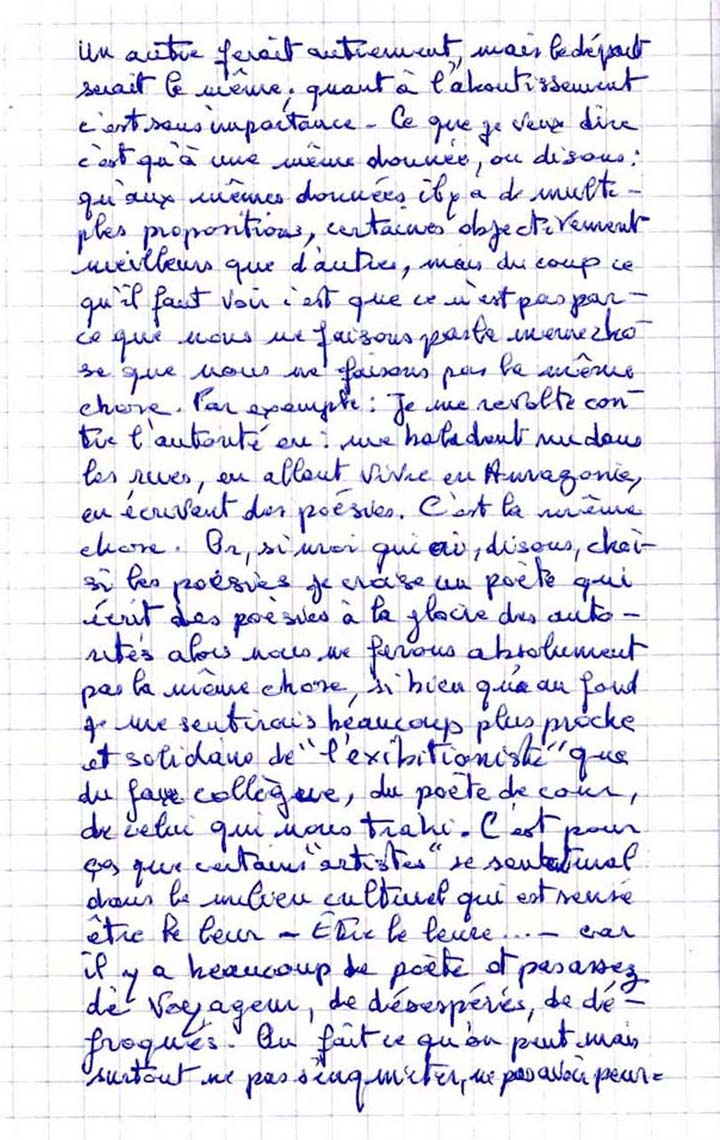 Un autre ferait autrement, mais le départ
serait le même; quant à l'aboutissement
c'est sans importance - Ce que je veux dire
c'est qu'à une même donnée, ou disons:
qu'aux mêmes données il y a de multi-
ples propositions, certaines objectivement
meilleurs que d'autres, mais du coup ce
qu'il faut voir c'est que ce n'est pas par-
ce que nous ne faisons pas la même cho-
se que nous ne faisons pas la même
chose. Par exemple: Je me revolte con-
tre l'autorité en: me baladant nu dans
les rues, en allant vivre en Amazonie,
en écrivant des poésies. C'est la même
chose. Or, si moi qui ai, disons, choi-
si les poésies je croise un poète qui
écrit des poésies à la gloire des auto-
rités alors nous ne ferons absolument
pas la même chose, si bien qu'au fond
je me sentirais beaucoup plus proche
et solidaire de "l'exibitioniste" que
du faux collègue, du poète de cour,
de celui qui nous trahi. C'est pour
ça que certains "artistes" se sentent mal
dans le milieu culturel qui est sensé
être le leur - Être le leure... - car
il y a beaucoup de poète et pas assez
de voyageur, de désespérés, de dé-
froqués. On fait ce qu'on peut mais
surtout ne pas s'inquieter, ne pas avoir peur-